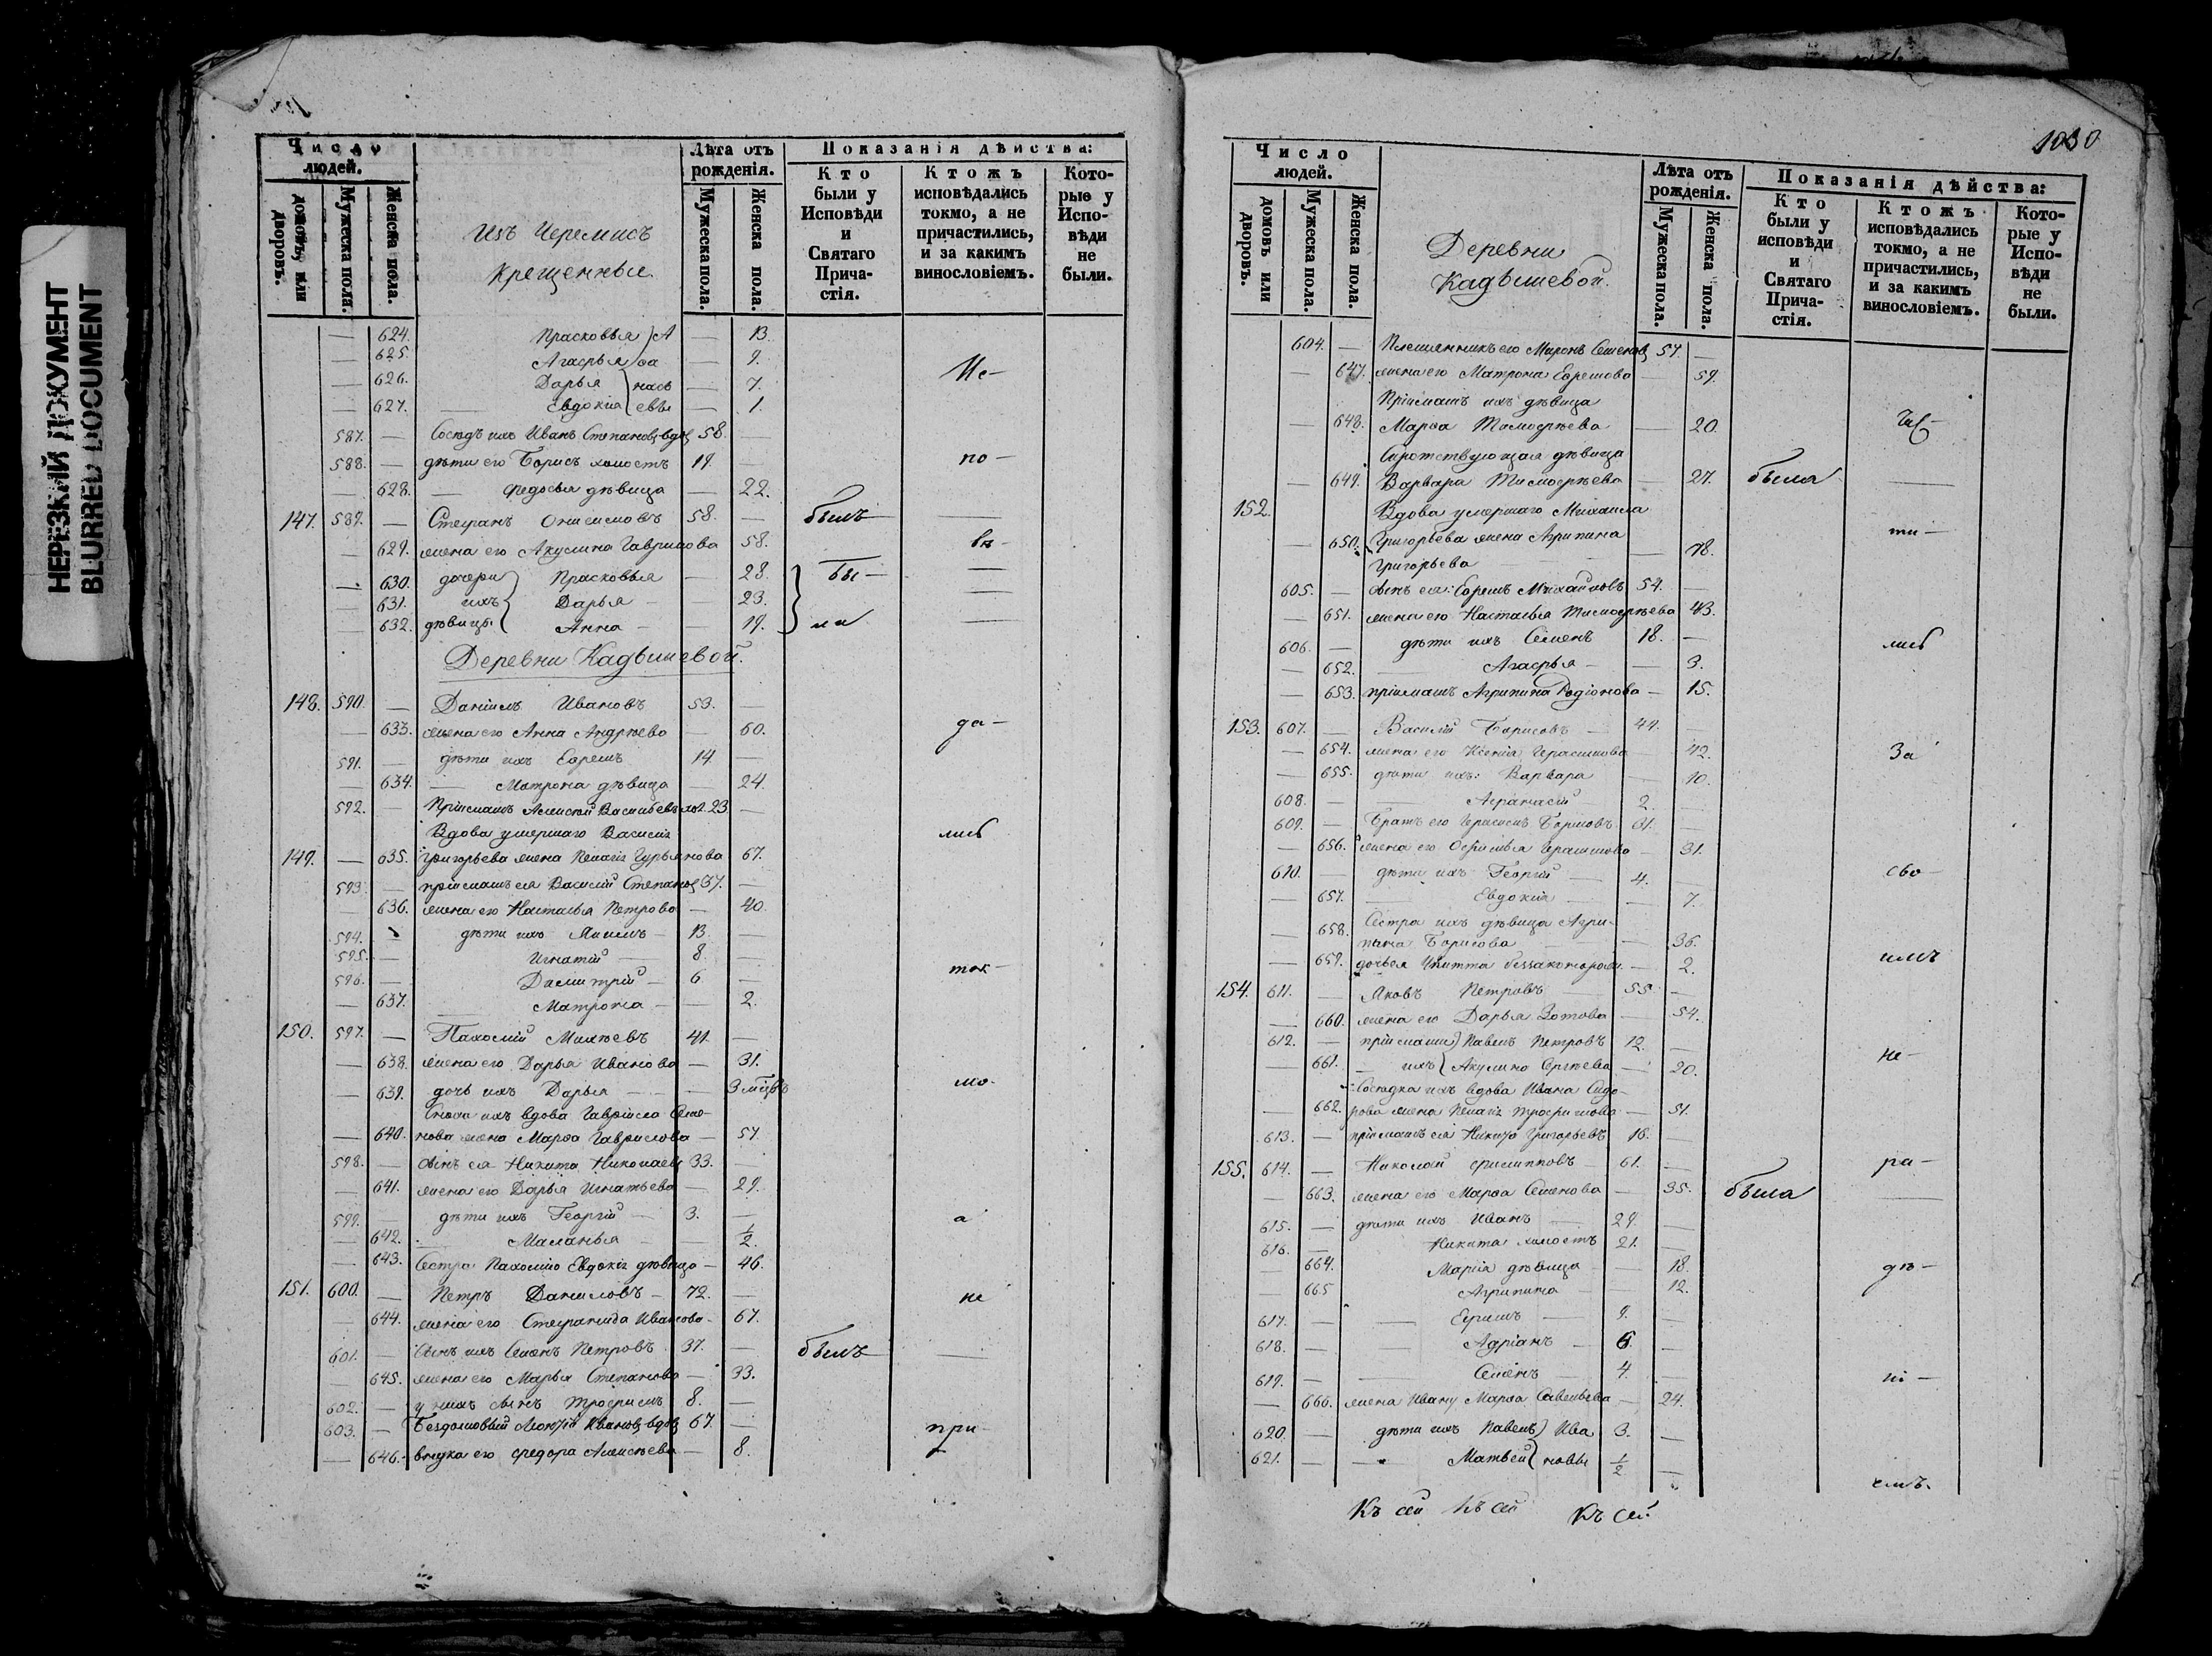 НЕРЕЗКИЙ ДОКУМЕНТ
BLURRED DOCUMENT
Число людей.
домовъ или дворовъ.
Мужеска пола.
Женска пола.
Изъ Черемисъ
Крещенныя
Лѣта отъ рожденія.
Мужеска пола.
Женска пола.
Показанія дѣйства:
Кто были у Исповѣди и Святаго Причастія.
Ктожъ исповѣдались токмо, а не причастились, и за какимъ винословіемъ.
Которые у Исповѣди не были.
— 624. Прасковья } А — 13.
— 625. Агафья } фа — 9.
Ис-
— 626. Дарья } нась — 7.
— 627. — Евдокія } евы — 1.
587. — Сосѣдъ ихъ Иванъ Степановъ вдов 58. —
588. — дѣти его Борисъ холостъ 19. — по-
— 628. — Федосья дѣвица — 22.
147. 589. — Стефанъ Онисимовъ 58. — былъ —
— 629. жена его Акулина Гаврилова 58. вѣ-
— 630. дочери } Прасковья — 28. } бы- —
— 631. ихъ } Дарья — 23. —
— 632. дѣвицы } Анна — 19. } ли —
Деревни Кадышевой.
148. 590. — Даніилъ Ивановъ 53. —
— 633. жена его Анна Андрѣева — 60. да-
591. — дѣти ихъ Ефремъ 14 —
— 634. — Матрона дѣвица — 24.
592. — Пріемышъ Алексѣй Васильевъ хол. 23. —
Вдова умершаго Василія лись
149. — 635. Григорьева жена Пелагія Гурьянова 67.
593. — пріемышъ ея Василій Степановъ 37. —
— 636. жена его Настасья Петрова — 40.
594. — дѣти ихъ Якимъ — 13. —
595. — Игнатій — 8. —
596. — Димитрій — 6 — ток-
— 637. — Матрона — 2.
150. 597. — Пахомій Михѣевъ 41. —
— 638. жена его Дарья Иванова — 31.
— 639. дочь ихъ Дарья — 3 мѣсцъ мо-
Сноха ихъ вдова Гаврила Семе-
— 640. нова жена Марфа Гаврилова — 57
598. — сынъ ея Никита Николаевъ 33. —
— 641. жена его Дарья Игнатьева — 29.
599. — дѣти ихъ Георгій — 3. — а
— 642. Маланья — ½
— 643. Сестра Пахомію Евдокія дѣвица — 46.
151. 600. — Петръ Даниловъ — 72. — не
— 644. жена его Стефанида Иванова — 67.
601. — Сынъ ихъ Семенъ Петровъ 37. — былъ —
— 645. жена его Марья Степанова — 33.
602. — у нихъ сынъ Трофимъ 8. —
603. — Бездомовый Ивановъ вдов 67. — при-
— 646. внука его Федора Алексѣева — 8.
1030
Число людей.
домовъ или дворовъ.
Мужеска пола.
Женска пола.
Деревни
Кадышевой.
Лѣта отъ рожденія.
Мужеска пола.
Женска пола.
Показанія дѣйства:
Кто были у исповѣди и Святаго Причастія.
Ктожъ исповѣдались токмо, а не причастились, и за какимъ винословіемъ.
Которые у Исповѣди не были.
604. — Племянникъ его Миронъ Семеновъ 57. —
— 647. жена его Матрона Ефремова — 59.
Пріемышъ ихъ дѣвица
— 648. Марфа Тимофѣева — 20.
Сиротствующая дѣвица
— 649. Варвара Тимофѣева — 27. была —
152. Вдова умершаго Михаила
— 650. Григорьева жена Агрипина — 78. ти-
Григорьева
605. — сынъ ея Ефремъ Михайловъ 54. —
— 651. жена его Настасья Тимофѣева 43.
606. — дѣти ихъ Семенъ 18. — лись
— 652. — Агафья — 3.
— 653. пріемышъ Агрипина Родіонова — 15.
153. 607. — Василій Борисовъ — 44. —
— 654. жена его Ксенія Герасимова 42. За
— 655. дѣти ихъ: Варвара — 10.
608. — Афанасій — 2. —
609. — Братъ его Герасимъ Борисовъ 31. —
— 656. жена его Ефимья Герасимова — 31.
610. — дѣти ихъ Георгій — 4. — сво-
— 657. — Евдокія — 7.
— 658. Сестра ихъ дѣвица Агри-
пина Борисова — 36.
— 659. дочь ея незаконорож. — 2. имъ
154. 611. — Яковъ Петровъ — 55 —
— 660. жена его Дарья Зотова — 54.
612. — пріемыши } Павелъ Петровъ 12. —
— 661. — ихъ } Акулина Сергѣева — 20. не-
Сосѣдка ихъ вдова Ивана Сидо-
— 662. рова жена Пелагія Трофимова — 51.
613. — пріемышъ ея Никита Григорьевъ 16. —
155. 614. — Николай Филипповъ — 61. — ра-
— 663. жена его Марфа Семенова — 35. была —
615. — дѣти ихъ Иванъ — 29. —
616. — Никита холостъ 21. —
— 664. Марія дѣвица — 18. дѣ-
— 665 Агрипина — 12.
617. — — Ефимъ — 9. —
618. — — Адріанъ — 6. —
619. — — Семенъ — 4. — ні-
— 666. жена Ивану Марфа Савельева — 24.
620. — дѣти ихъ Павелъ } Ива 3. —
621. — — Матвей } новы ½ —
емъ.
Къ сей Къ сей Къ сей